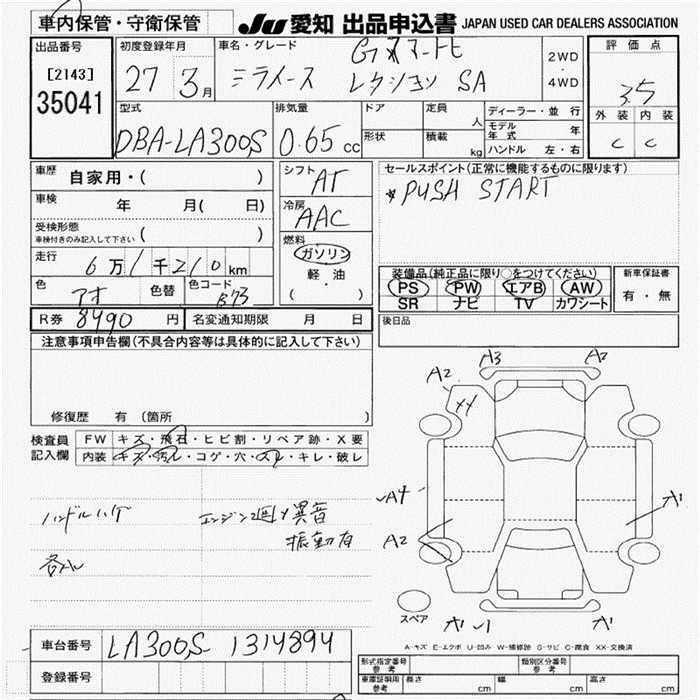 車内保管・守衛保管
JU 愛知 出品申込書 JAPAN USED CAR DEALERS ASSOCIATION
出品番号 初度登録年月 車名・グレード 評価点
[2143]
35041
27 3月
ミライース
レクション SA
2WD
・
4WD
3.5
外装 内装
C C
型式 排気量 ドア 定員 人 ディーラー・並行
DBA-LA300S 0.65 cc
形状 積載 kg
モデル年式 年
ハンドル 左・右
車歴 自家用・( )
シフト AT
セールスポイント(正常に機能するものに限ります)
*PUSH START
車検 年 月( 日)
冷房 AAC
受検形態 ( )
車検付きのみ記入して下さい
燃料 ガソリン
軽・油
( ・ )
走行 6万1千210km
装備品(純正品に限り○をつけてください)
PS PW エアB AW
SR ナビ TV カワシート
新車保証書
有・無
色 アオ 色替 色コード B73
後日品
R券 8490 円 名変通知期限 月 日
注意事項申告欄(不具合内容等は具体的に記入して下さい)
修復歴 有 (箇所 )
検査員記入欄
FW キズ・飛石・ヒビ割・リペア跡・X要
内装 キズ・汚レ・コゲ・穴・スレ・キレ・破レ
A2 A3 A2
XX
A4
A2
A1
ハンドルハゲ エンジン廻り異音
振動有
スペア
A1 A1
A-キズ E-エクボ U-凹み W-補修跡 S-サビ C-腐食 XX-交換済
車台番号 LA300S 1314894
登録番号
形式指定番号 参考 類別区分番号 参考
車庫証明用 参考 長さ cm 幅 cm 高さ cm